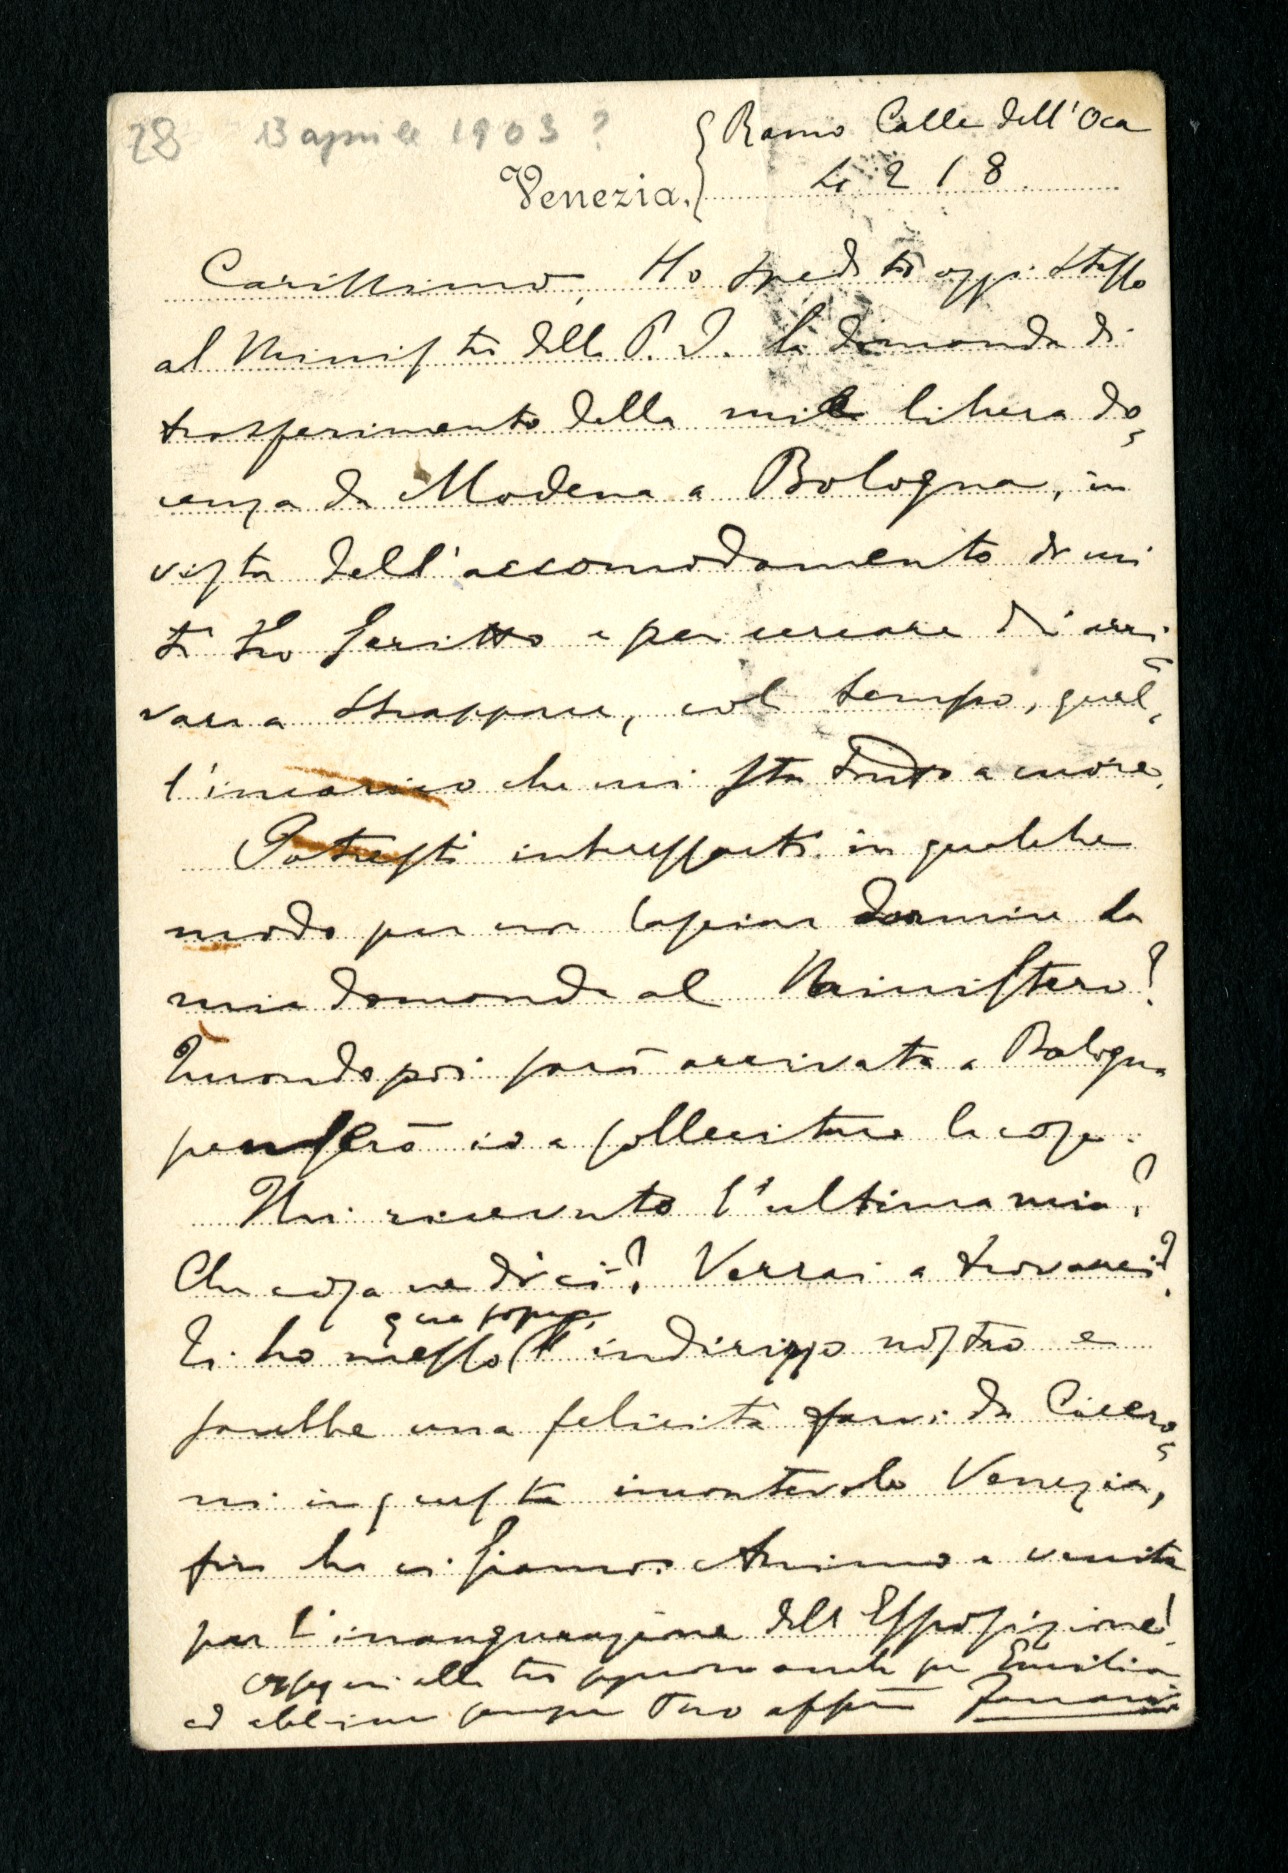 28 13 aprile 1903?
Ramo Calle dell'Oca
Venezia, 4218
Carissimo, Ho spedito oggi stesso
al Ministro della P. I. la domanda di
trasferimento della mia libera do-
cenza da Modena a Bologna, in
vista dell'accomodamento di cui
ti ho scritto e per cercare di arri-
vare a strappare, col tempo, quel-
l'incarico che mi sta tanto a cuore.
Potresti interessarti in qualche
modo per non lasciar dormire la
mia domanda al Ministero?
Quando poi sarà arrivata a Bologna
penserò io a sollecitare la cosa.
Hai ricevuto l'ultima mia?
Che cosa ne dici? Verrai a trovarci?
qua sopra
Ti ho messo l'indirizzo nostro e
sarebbe una felicità farvi da Cicero-
ni in questa incantevole Venezia,
fin che ci siamo. Animo e venite
per l'inaugurazione dell'Esposizione!
Ossequi alla tua signora anche per Emilia
ed abbimi sempre Tuo affmo